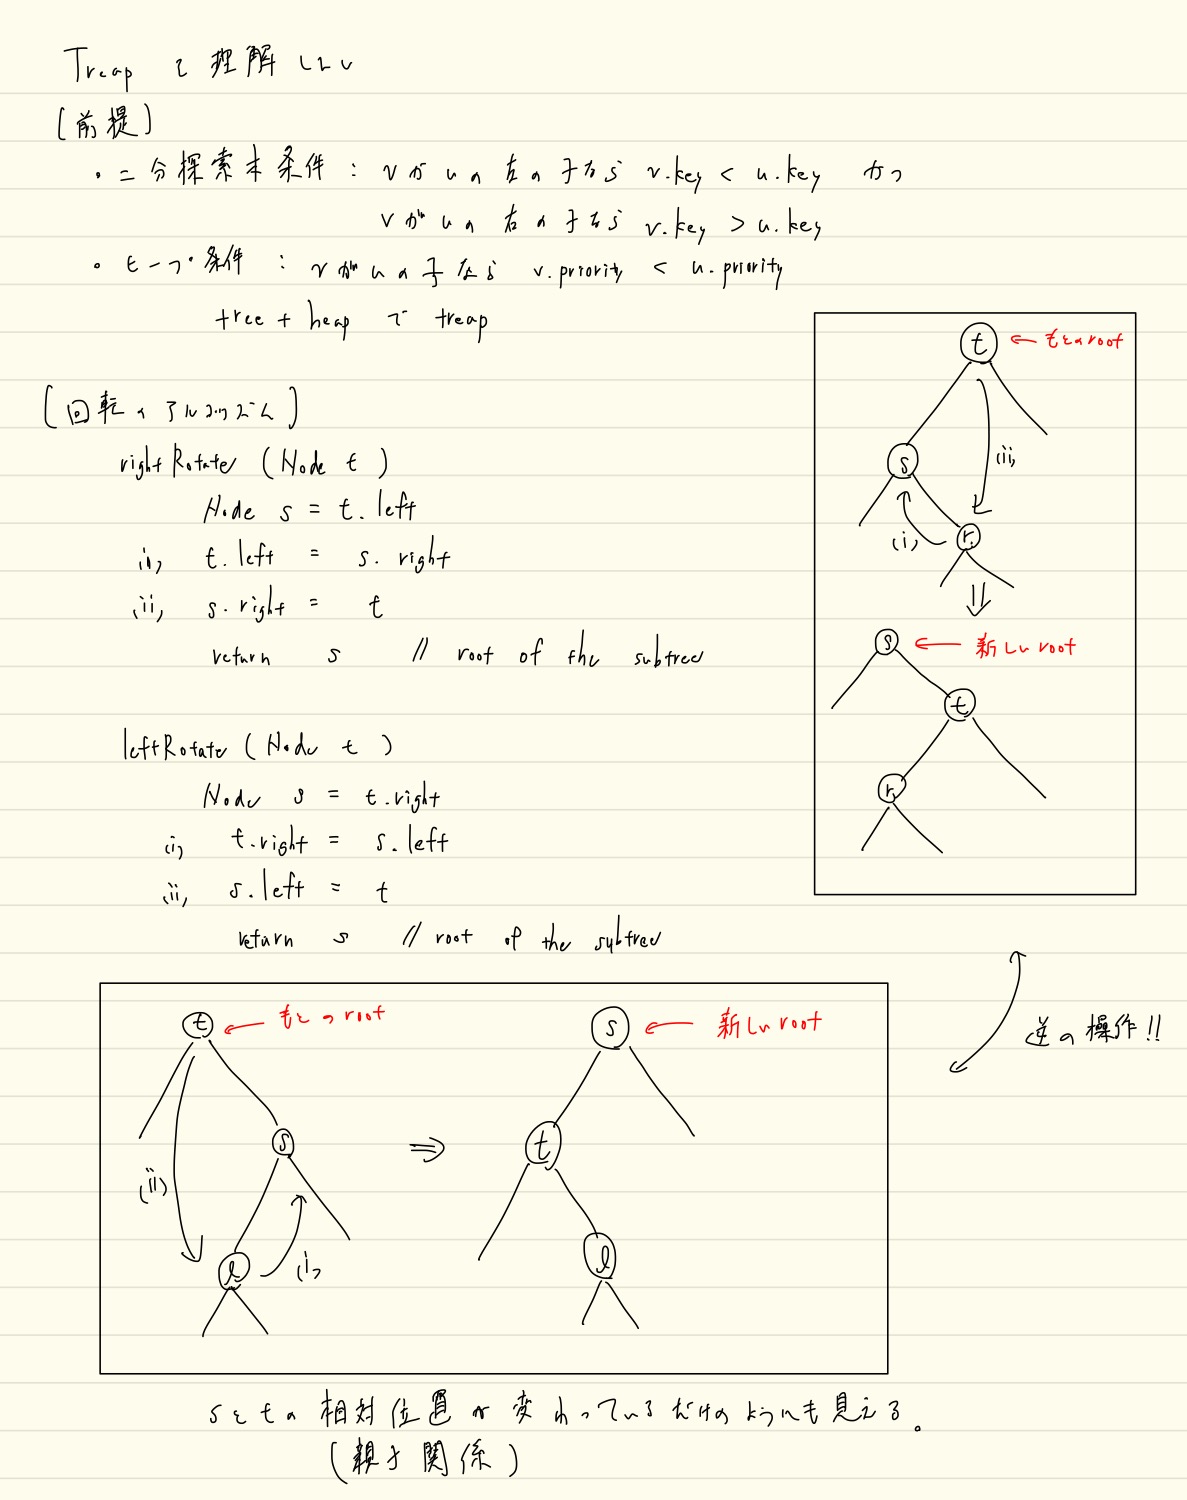 Treap を 理解したい
[前提]
・二分探索木条件 : vがuの左の子なら v.key < u.key かつ
vがuの右の子なら v.key > u.key
・ヒープ条件 : vがuの子なら v.priority < u.priority
tree + heap で treap
[回転のアルゴリズム]
rightRotate (Node t )
Node s = t.left
(i) t.left = s.right
(ii) s.right = t
return s // root of the subtree
t ← もとのroot
s (ii)
(i) r
⇓
s ← 新しいroot
t
r
leftRotate ( Node t )
Node s = t.right
(i) t.right = s.left
(ii) s.left = t
return s // root of the subtree
逆の操作!!
t ← もとのroot
s
(ii)
l (i)
⇒
s ← 新しいroot
t
l
sとtの相対位置が変わっているだけのようにも見える。
(親子関係)